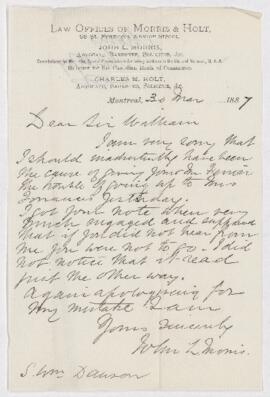 LAW OFFICES OF MORRIS & HOLT,
JOHN L. MORRIS,
ADVOCATE, BARRISTER, SOLICITOR, &c.
CHARLES M. HOLT,
ADVOCATE, BARRISTER, SOLICITOR, &c.
Montreal, 30 Mar 1887
Dear Sir William
I am very sorry that
I should inadvertently have been
the cause of giving you
the trouble of going up to
yesterday.
I got your note when very
much engaged and supposed
that if you did not hear from
me you were not to go. I did
not notice that it read
just the other way.
Again apologising for
my mistake I am
Yours sincerely
John L Morris
S. Wm Dawson